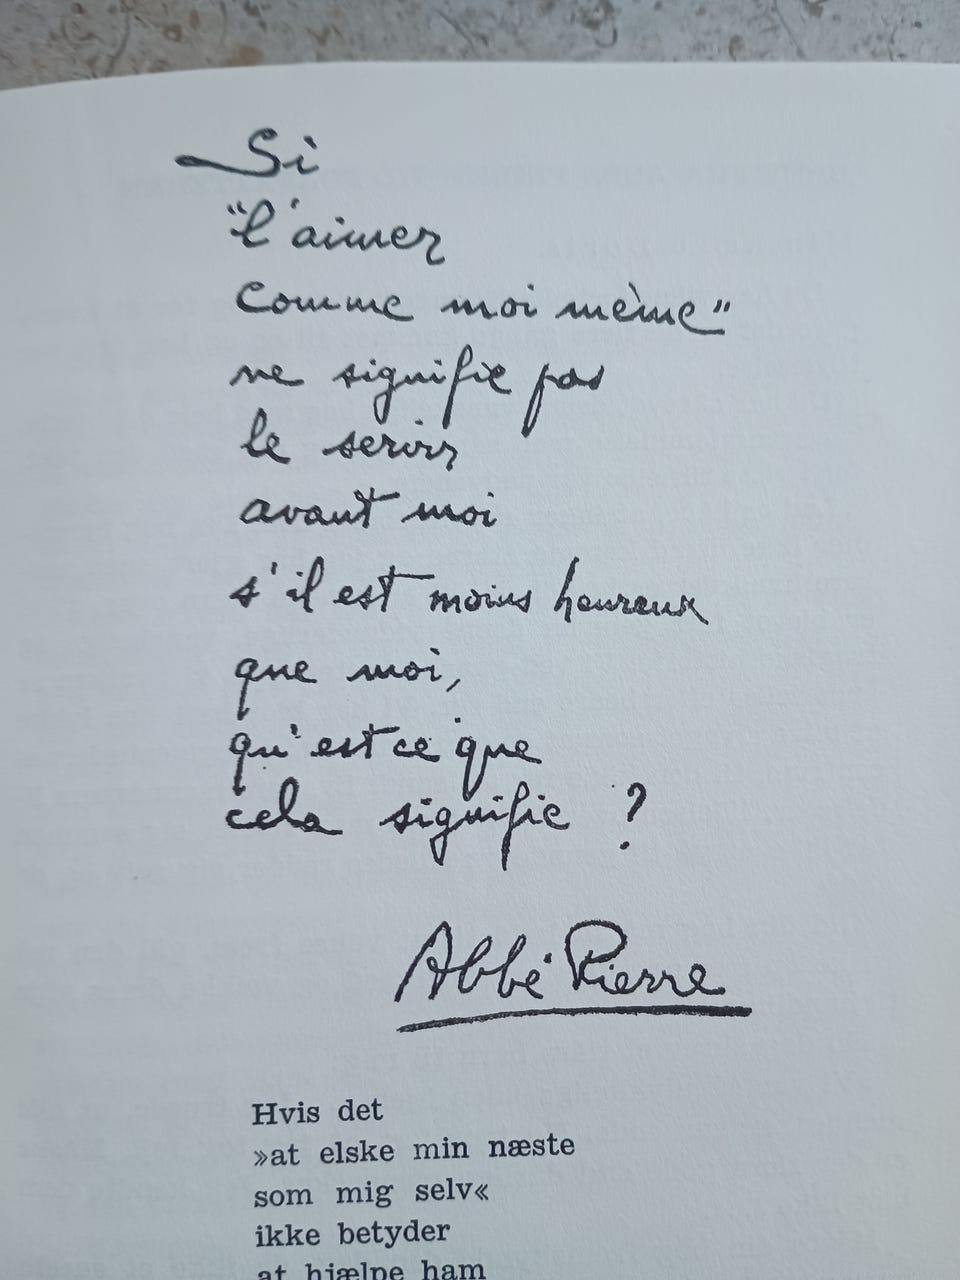 Si
"l'aimer
comme moi même"
ne signifie pas
le servir
avant moi
s'il est moins heureux
que moi,
qu'est ce que
cela signifie ?
Abbé Pierre
Hvis det
»at elske min næste
som mig selv«
ikke betyder
at hjælpe ham